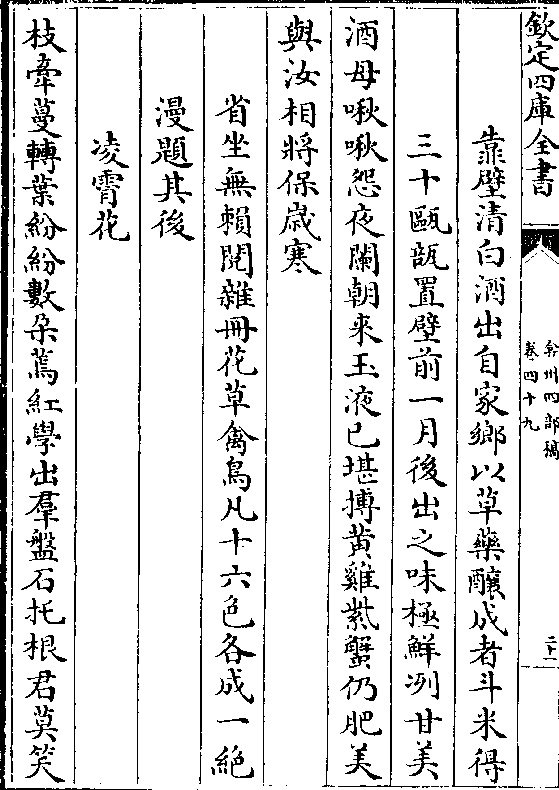 欽定四庫全書
弇州四部稿
卷四十九
二十一
靠壁清白酒出自家鄉以草藥釀成者斗米得
三十甌瓿置壁前一月後出之味極鮮冽甘美
酒母啾啾怨夜闌朝來玉液已堪摶黃雞紫蟹仍肥美
與汝相將保歲寒
省坐無賴閱雜冊花草禽鳥凡十六色各成一絕
漫題其後
凌霄花
枝牽蔓轉葉紛紛數朶蔫紅學出羣盤石托根君莫笑